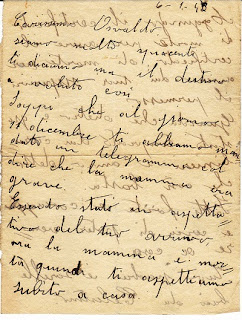 6-1-43
Carissimo Osvaldo
siamo molto spiacente
le diciamo ma il destino
a voluto così
doppo che al giorno
dicembre ti abbiamo man
dato un telegramma col
dire che la mamma era
grave.
Essendo stato in aspetta
tivo del tuo arrivo
ma la mamma è mor
ta quindi ti aspettiamo
subito a casa